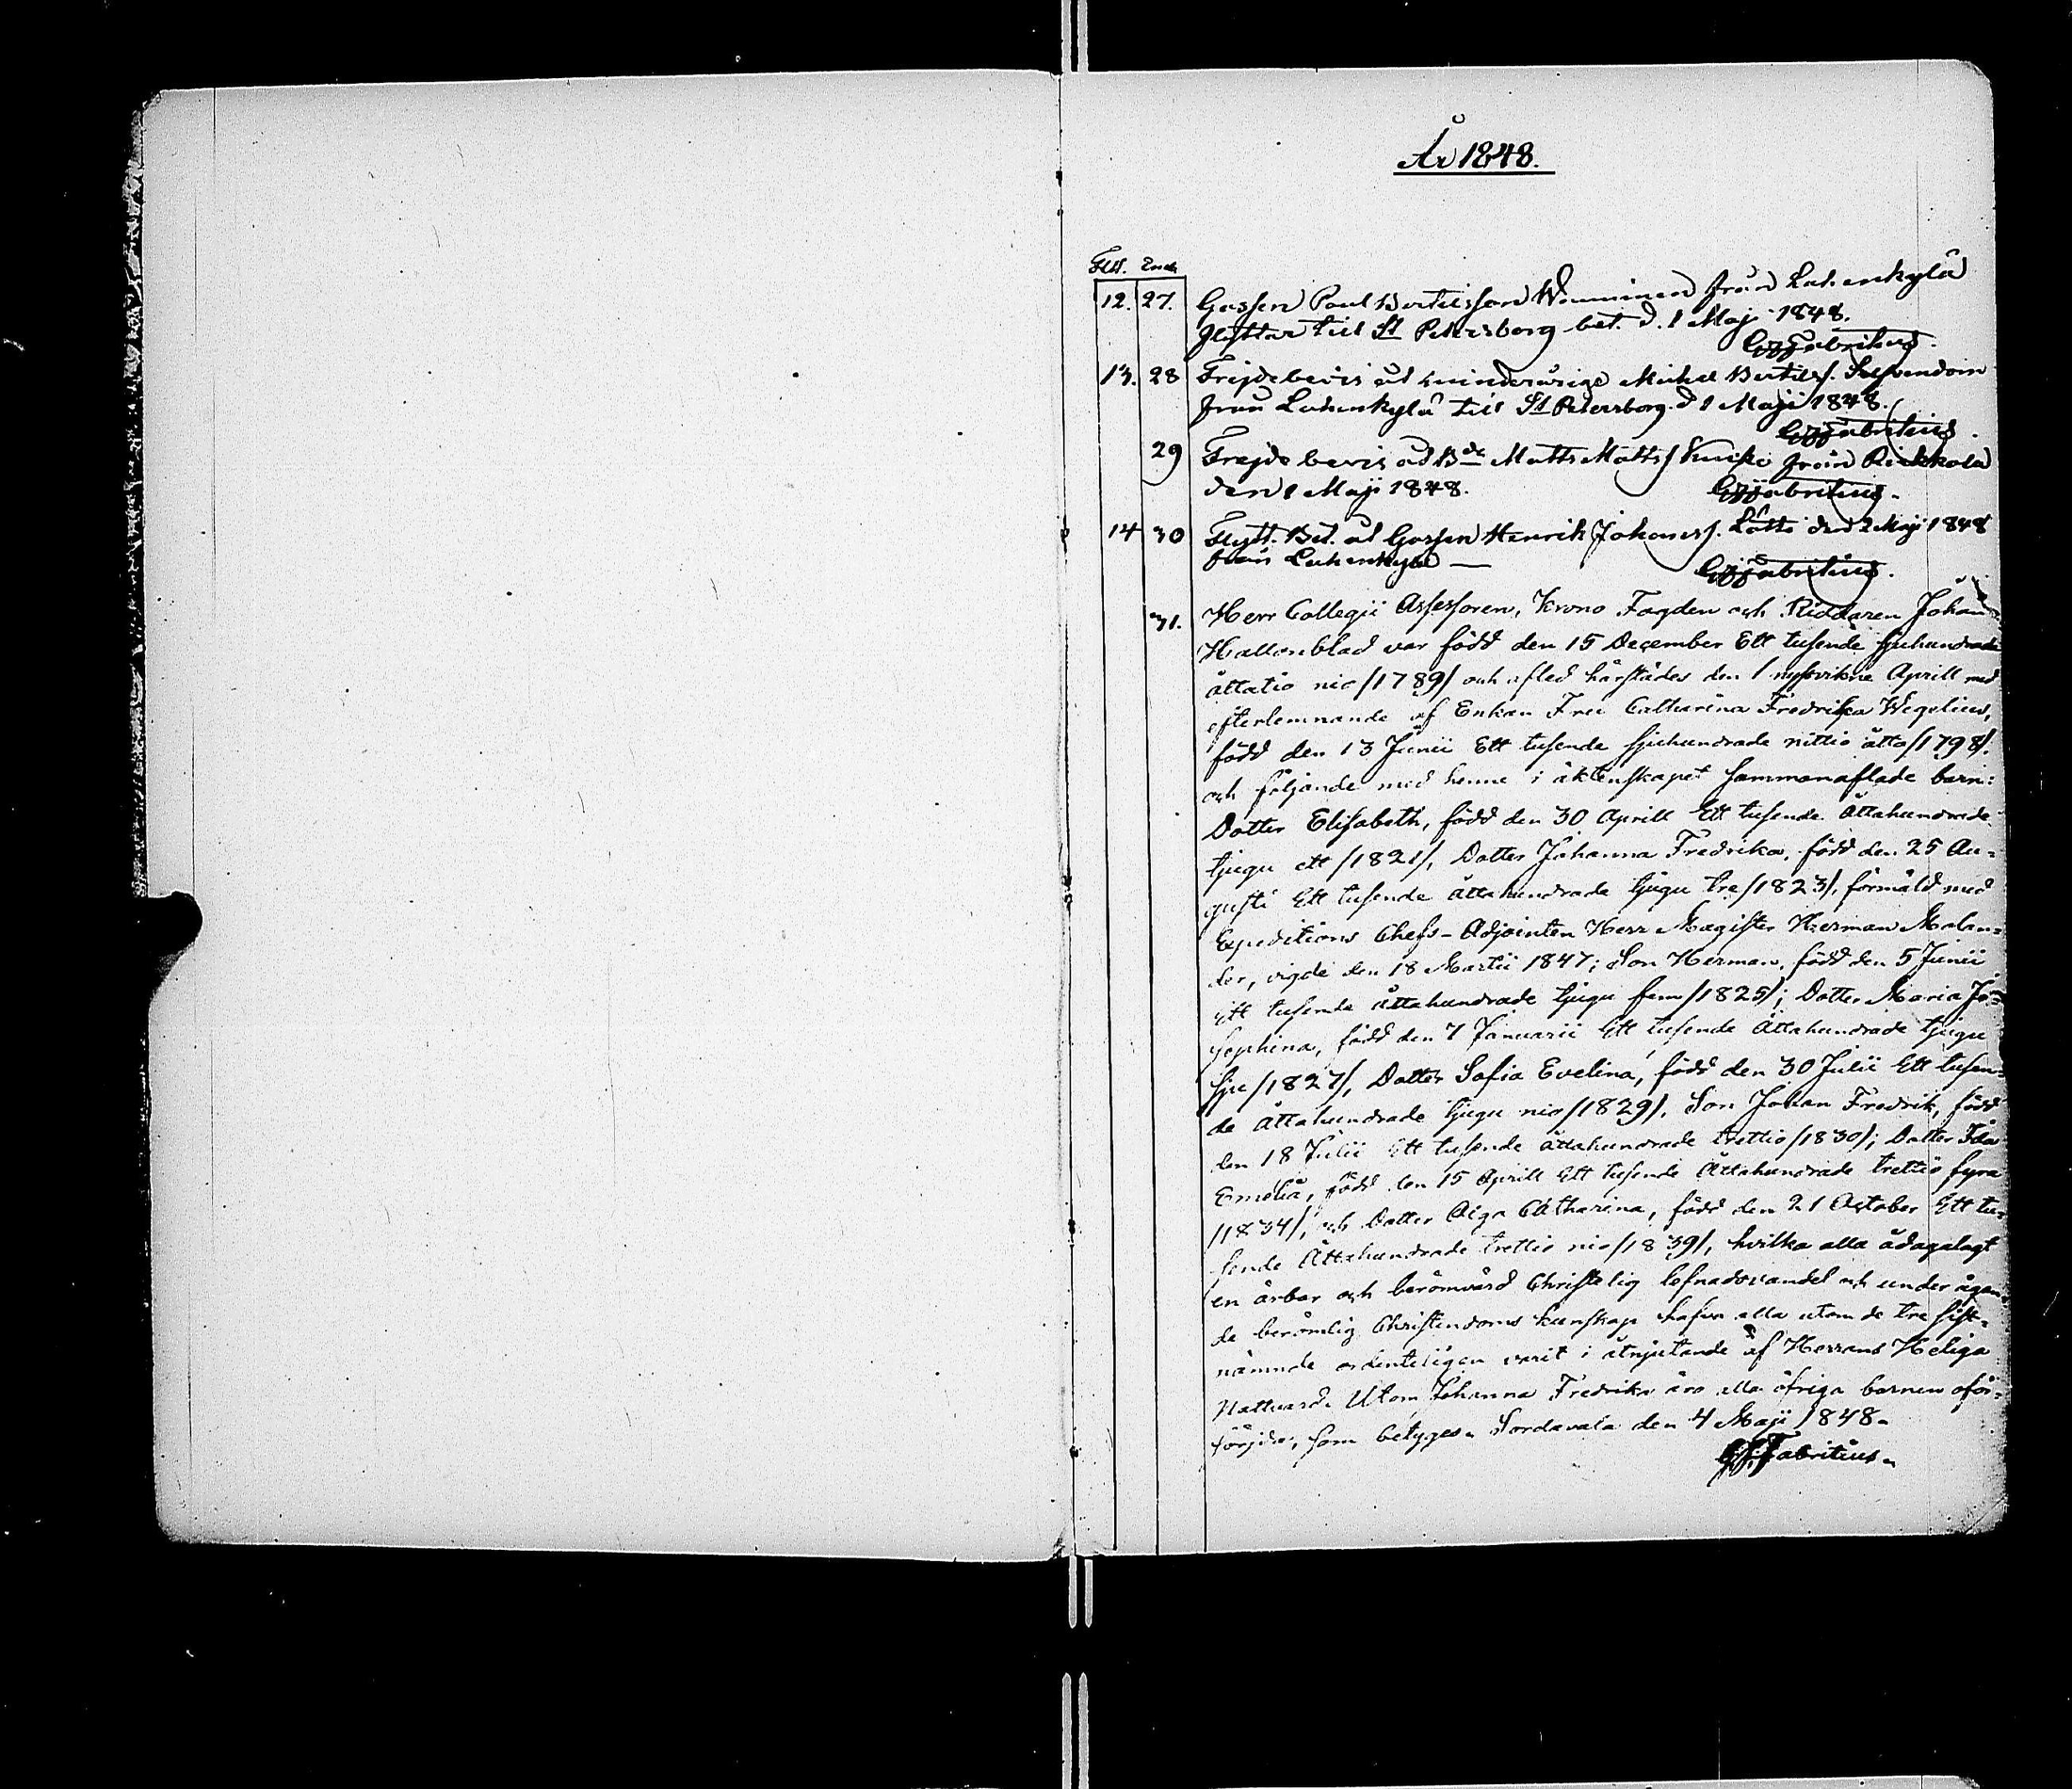 År 1848.
Flytt. Enck.
12. 27. Gossen Paul Bertilsson Wenninen från Lahenkylä
flyttar till St Petersborg bet. d. 1 Maji 1848.
Fabritius.
13. 28 Frejdebevis åt minderårige Michel Bertilss.
från Lahenkylä till St Petersborg d 1 Maji 1848.
Fabritius.
29 Frejdebevis åd Bde Matts Mattss från Riekkola
den 1 Maji 1848.
Fabritius.
14 30 Flytt. Bet. åt Gossen Henrik Johanss. Lätti den 2 Maji 1848
från Lahenkylä —
Fabritius.
31. Herr Collegii Assessoren, Krono Fogden och Riddaren Johan
Hallonblad var född den 15 December Ett tusende sjuhundrade
åttatio nio /1789/ och afled härstädes den 1 nyssvikne Aprill med
efterlemnande af Enkan Fru Catharina Fredrika Wegelius,
född den 13 Junii Ett tusende sjuhundrade nittio åtta /1798/.
och följande med henne i äktenskapet sammanaflade barn:
Dotter Elisabeth, född den 30 Aprill Ett tusende Åttahundrade
tjugu ett /1821/, Dotter Johanna Fredrika, född den 25 Au=
gusti Ett tusende åttahundrade tjugu tre /1823/, förmäld med
Expeditions Chefs-Adjointen Herr Magister Herman Molan=
der, vigde den 18 Martii 1847; Son Herman, född den 5 Junii
ett tusende åttahundrade tjugu fem /1825/; Dotter Maria Jo=
sephina, född den 7 Januarii Ett tusende Åttahundrade tjugu
sju /1827/, Dotter Sofia Evelina, född den 30 Julii Ett tusen=
de åttahundrade tjugu nio /1829/, Son Johan Fredrik, född
den 18 Julii Ett tusende åttahundrade trettio /1830/; Dotter Ida
Emelia, född den 15 Aprill Ett tusende Åttahundrade trettio fyra
/1834/, och Dotter Olga Catharina, född den 21 October Ett tu=
sende Åttahundrade trettio nio /1839/, hvilka alla ådagalagt
en ärbar och berömvärd Christelig lefnadsvandel och under ägan=
de berömlig Christendoms kunskap hafva alla utom de tre sist=
nämnde ordenteligen varit i åtnjutande af Herrans Heliga
Nattvard. Utom Johanna Fredrika äro alla öfriga barnen oför=
sörjda, som betygas. Sordavala den 4 Maji 1848.
Fabritius.